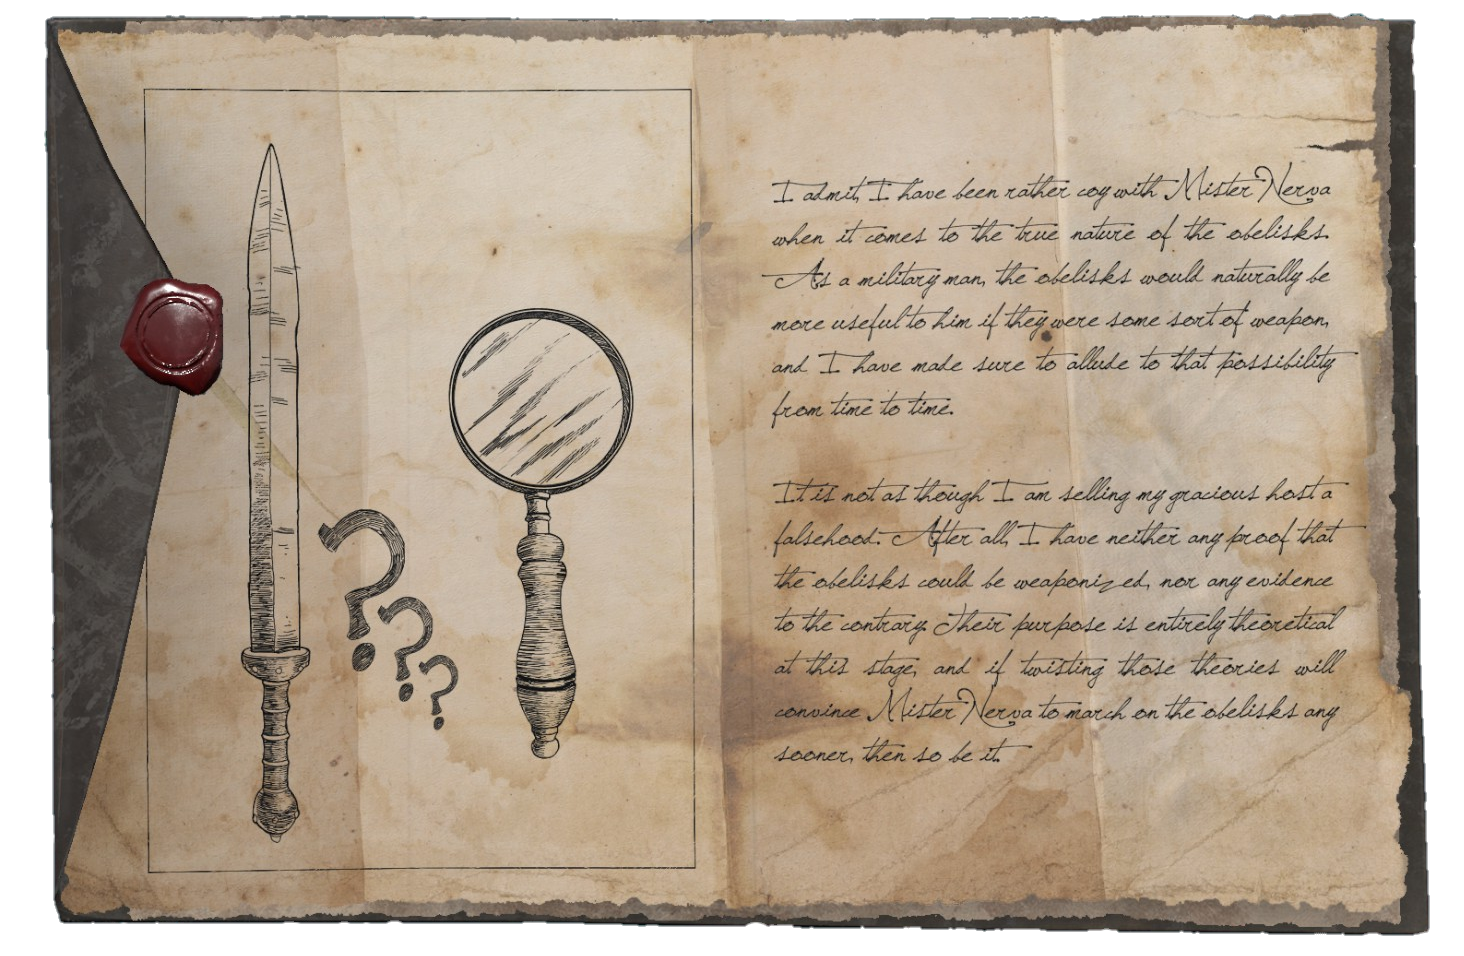 I admit, I have been rather coy with Mister Nerva
when it comes to the true nature of the obelisks.
As a military man, the obelisks would naturally be
more useful to him if they were some sort of weapon,
and I have made sure to allude to that possibility
from time to time.
It is not as though I am selling my gracious host a
falsehood. After all, I have neither any proof that
the obelisks could be weaponized, nor any evidence
to the contrary. Their purpose is entirely theoretical
at this stage, and if twisting those theories will
convince Mister Nerva to march on the obelisks any
sooner, then so be it.